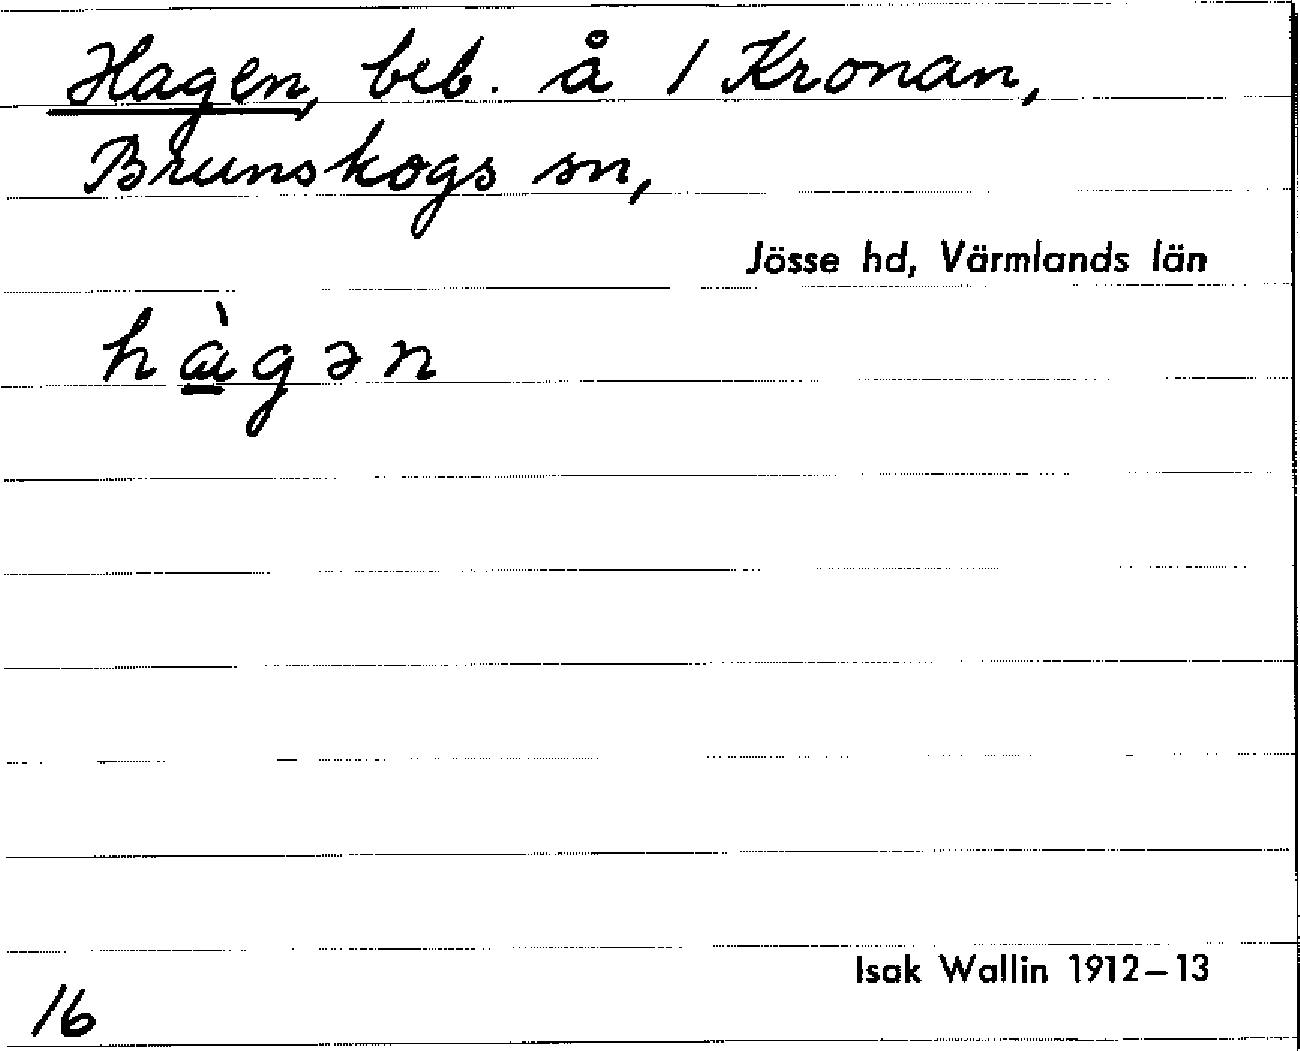 Hagen, beb. å 1 Kronan,
Brunskogs sn,
Jösse hd, Värmlands län
hà̱gən
Isak Wallin 1912–13
16